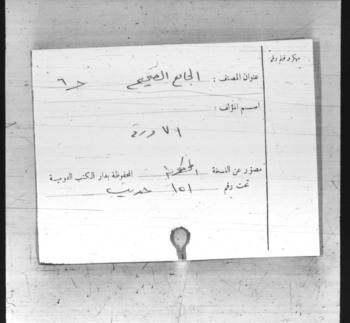 ميكروفيلم رقم
عنوان المصنف : الجامع الصحيح حـ ٦
اسم المؤلف :
٧٩ ورقة
مصور عن النسخة المحفوظة بدار الكتب القومية
تحت رقم ١٥١ حديث